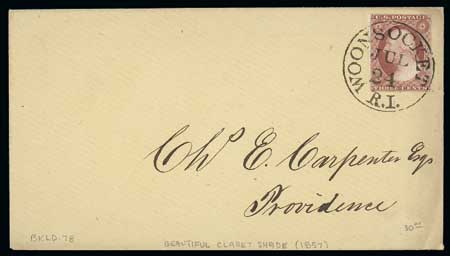 U.S. POSTAGE
THREE CENTS
WOONSOCKET
JUL
24
R.I.
Chs E. Carpenter Esqr
Providence
30⁰⁰
BKLD-78
BEAUTIFUL CLARET SHADE (1857)